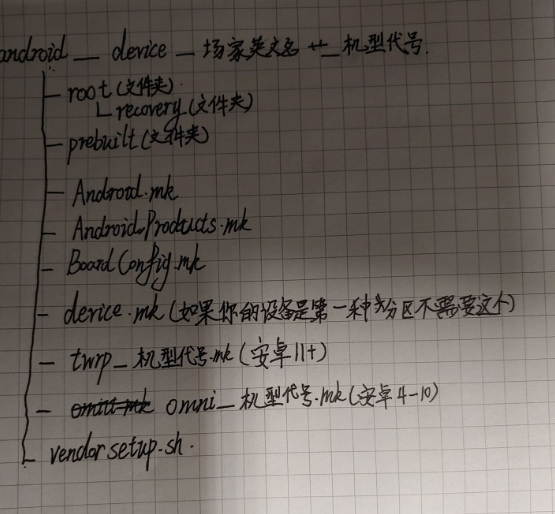 android__device_场家英文名 _ 机型代号.
root(文件夹)
recovery(文件夹)
prebuilt(文件夹)
Android.mk
AndroidProducts.mk
BoardConfig.mk
device.mk(如果你的设备是第一种分区不需要这个)
twrp_机型代号.mk(安卓11+)
omni_机型代号.mk(安卓4-10)
vendorsetup.sh.